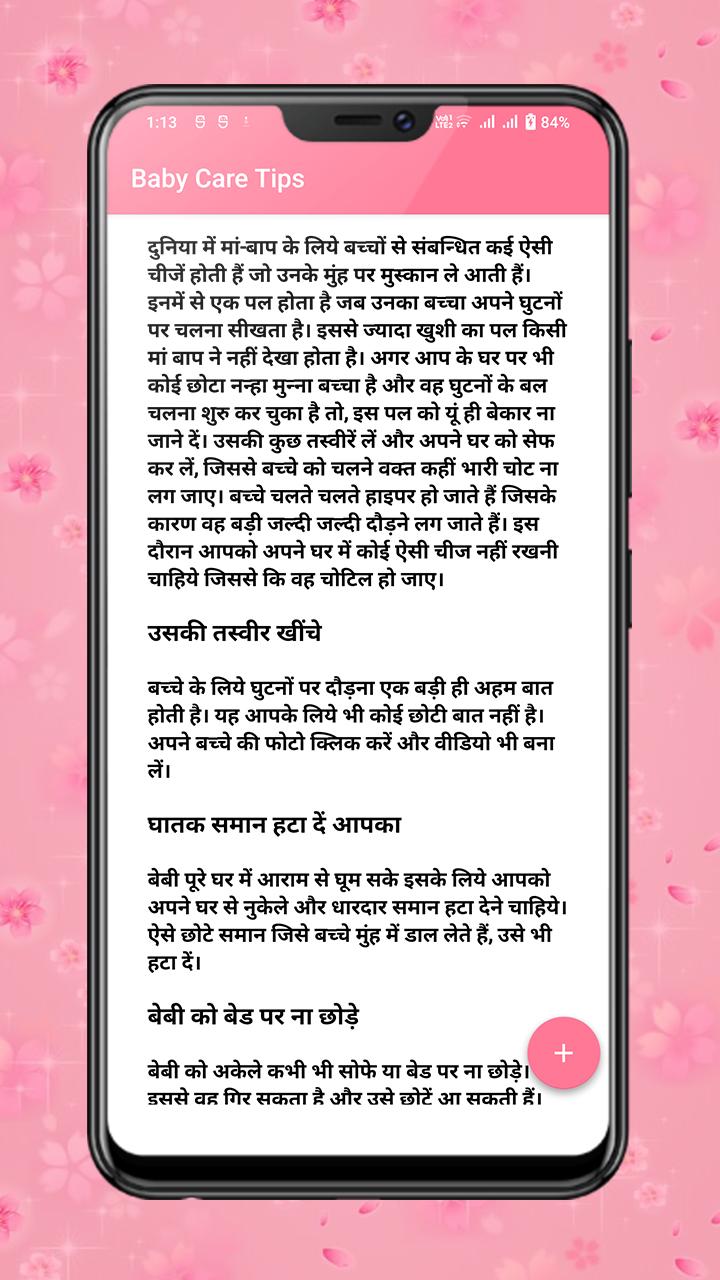 1:13
Vo)) 1
LTE2
84%
Baby Care Tips
दुनिया में मां-बाप के लिये बच्चों से संबन्धित कई ऐसी
चीजें होती हैं जो उनके मुंह पर मुस्कान ले आती हैं।
इनमें से एक पल होता है जब उनका बच्चा अपने घुटनों
पर चलना सीखता है। इससे ज्यादा खुशी का पल किसी
मां बाप ने नहीं देखा होता है। अगर आप के घर पर भी
कोई छोटा नन्हा मुन्ना बच्चा है और वह घुटनों के बल
चलना शुरु कर चुका है तो, इस पल को यूं ही बेकार ना
जाने दें। उसकी कुछ तस्वीरें लें और अपने घर को सेफ
कर लें, जिससे बच्चे को चलने वक्त कहीं भारी चोट ना
लग जाए। बच्चे चलते चलते हाइपर हो जाते हैं जिसके
कारण वह बड़ी जल्दी जल्दी दौड़ने लग जाते हैं। इस
दौरान आपको अपने घर में कोई ऐसी चीज नहीं रखनी
चाहिये जिससे कि वह चोटिल हो जाए।
उसकी तस्वीर खींचे
बच्चे के लिये घुटनों पर दौड़ना एक बड़ी ही अहम बात
होती है। यह आपके लिये भी कोई छोटी बात नहीं है।
अपने बच्चे की फोटो क्लिक करें और वीडियो भी बना
लें।
घातक समान हटा दें आपका
बेबी पूरे घर में आराम से घूम सके इसके लिये आपको
अपने घर से नुकेले और धारदार समान हटा देने चाहिये।
ऐसे छोटे समान जिसे बच्चे मुंह में डाल लेते हैं, उसे भी
हटा दें।
बेबी को बेड पर ना छोड़े
बेबी को अकेले कभी भी सोफे या बेड पर ना छोड़े।
इससे वह गिर सकता है और उसे छोटें आ सकती हैं।